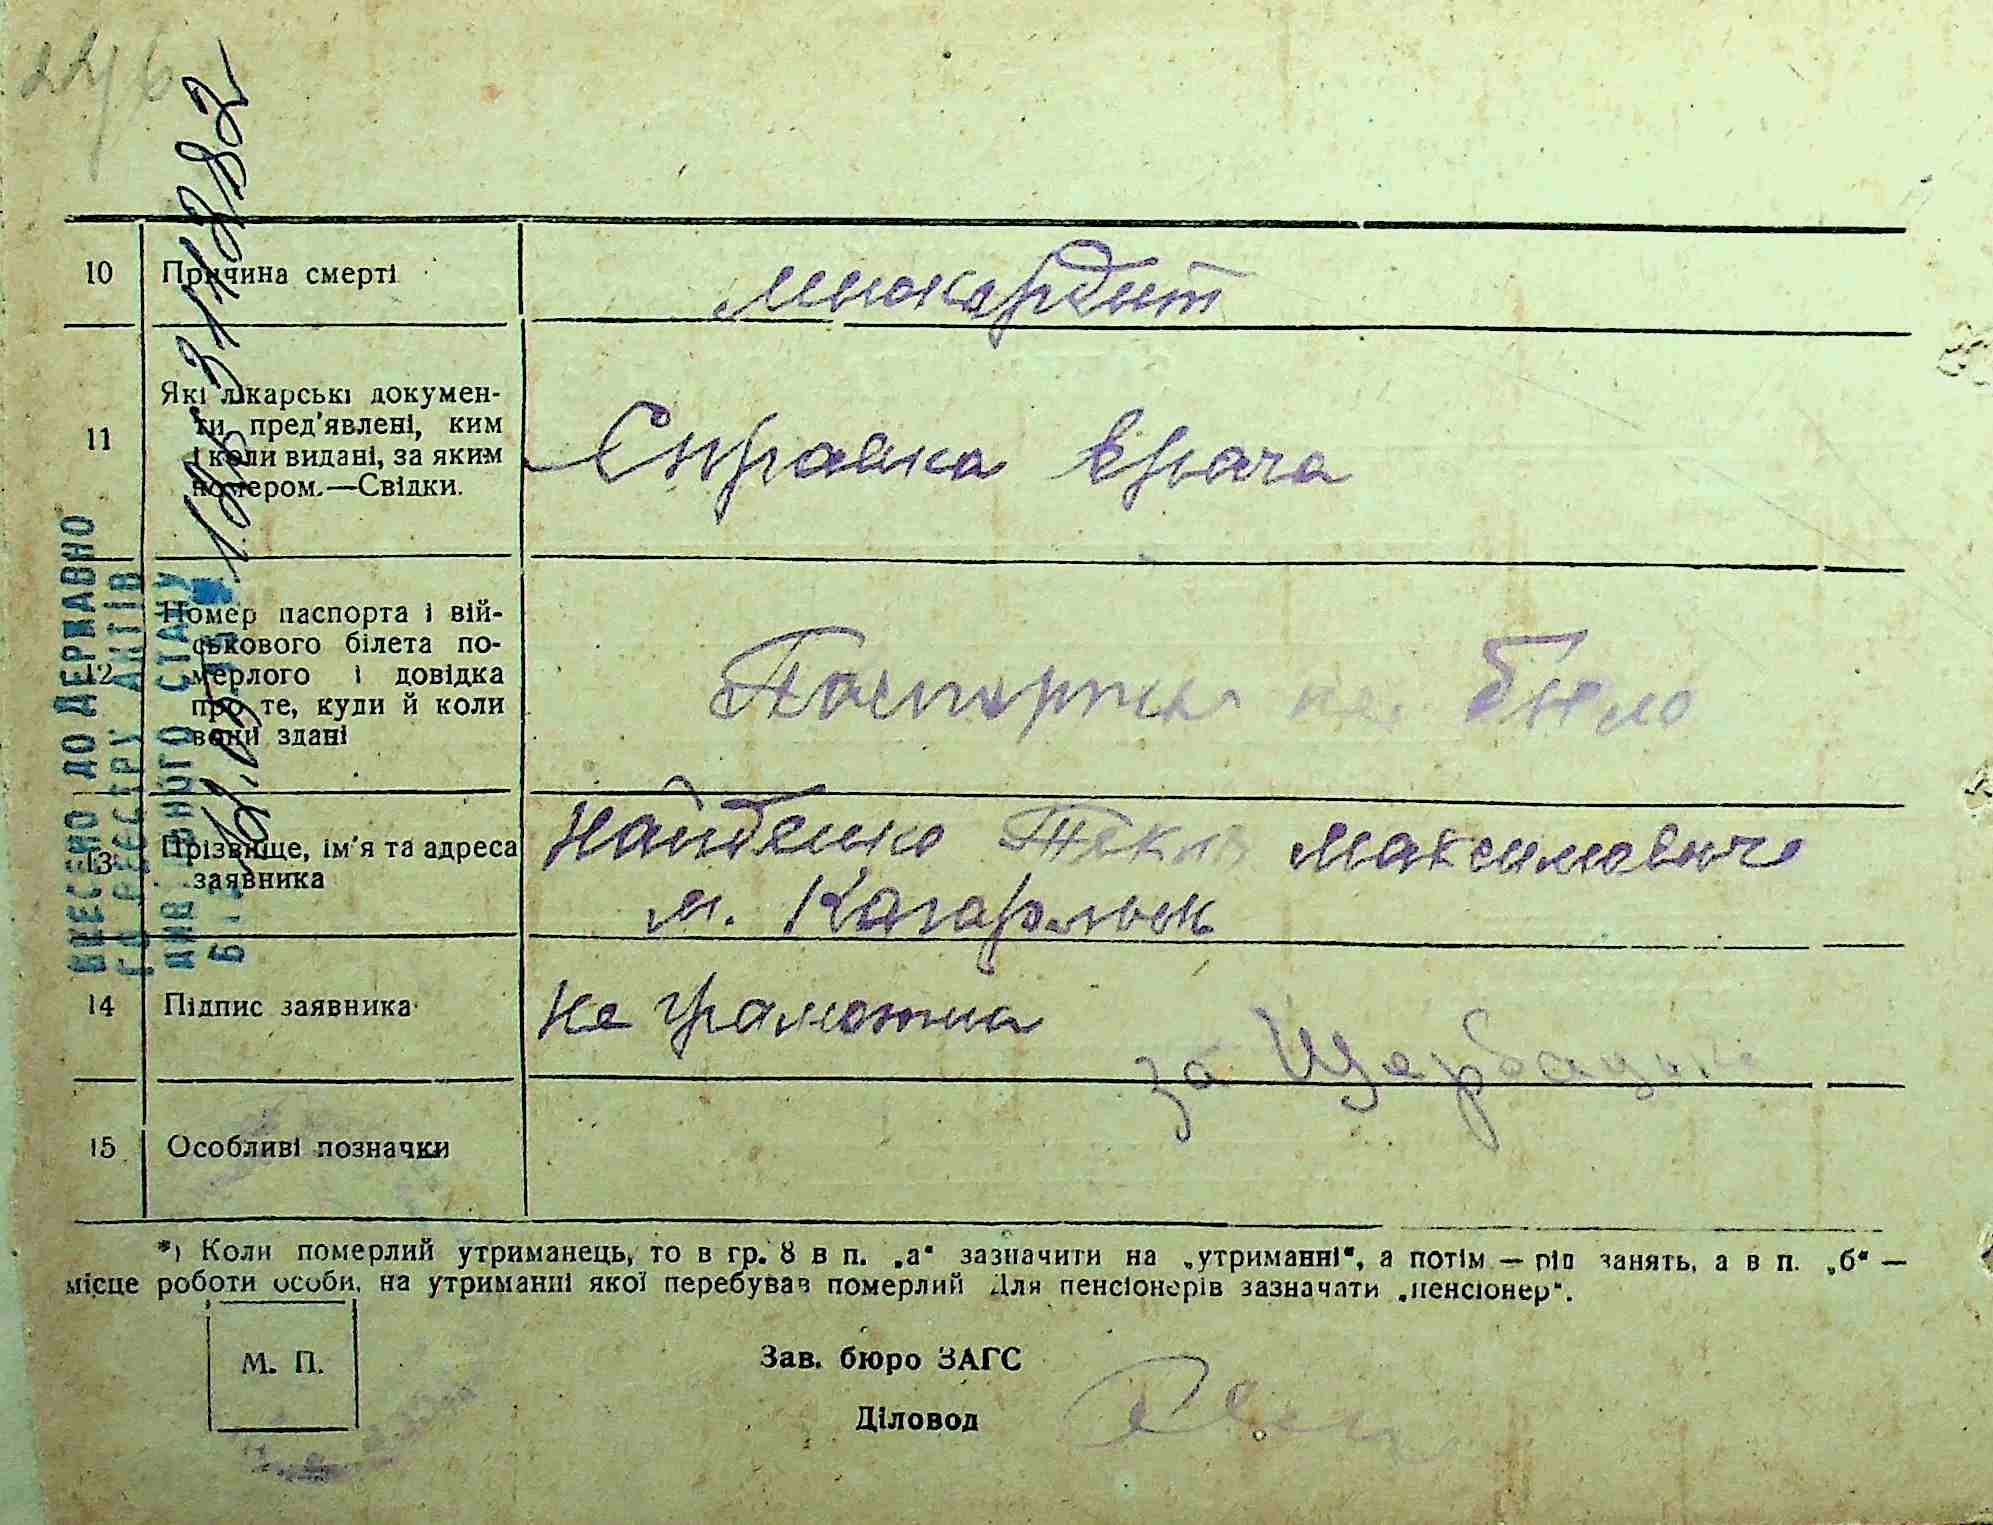 10 Причина смерті
Миокардит
11 Які лікарські докумен-
ти пред'явлені, ким
і коли видані, за яким
номером.—Свідки.
Справка врача
12 Номер паспорта і вій-
ськового білета по-
мерлого і довідка
про те, куди й коли
вони здані
Паспорта не было
13 Прізвище, ім'я та адреса
заявника
Найденко Текля Максимовна
м. Кагарлык
14 Підпис заявника
не грамотна
за
15 Особливі позначки
*) Коли померлий утриманець, то в гр. 8 в п. „а“ зазначити на „утриманні“, а потім — рід занять, а в п. „б“ —
місце роботи особи, на утриманні якої перебував померлий Для пенсіонерів зазначати „пенсіонер“.
М. П.
Зав. бюро ЗАГС
Діловод
ВНЕСЕНО ДО ДЕРЖАВНО
ГО РЕЕСТРУ АКТІВ
ЦИВІЛЬНОГО СТАНУ